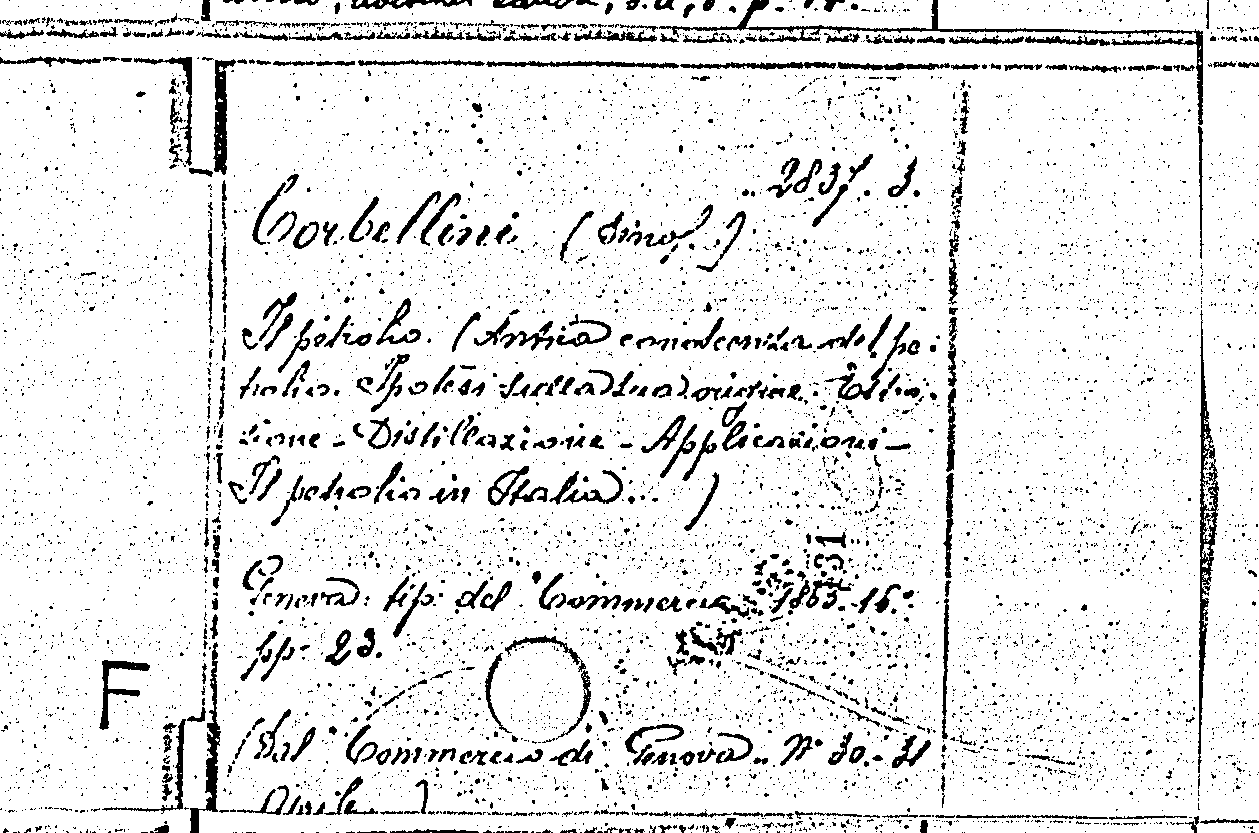 s.a, 8. p. 14.
2837. 3.
Corbellini (Prof.)
Il petrolio. (Antica conoscenza del pe-
trolio. Ipotesi sulla sua origine. Estra-
zione - Distillazione - Applicazioni -
Il petrolio in Italia... )
131
Genova. tip. del Commercio 1865. 16.°
pp. 23.
F
(Dal "Commercio di Genova„ N° 30.-31
Aprile )